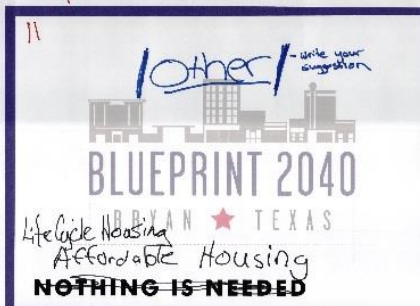 11
/Other/ - write your
suggestion
BLUEPRINT 2040
BRYAN ★ TEXAS
Life Cycle Housing
Affordable Housing
NOTHING IS NEEDED